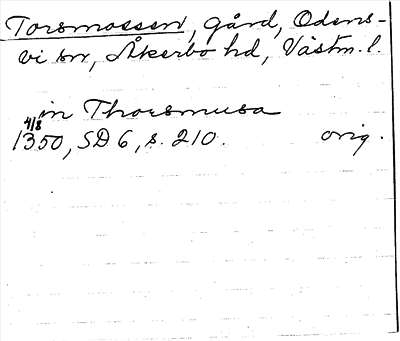 Torsmossen, gård, Odens-
vi sn, Åkerbo hd, Västm. l.
in Thorsmusa
4/8
1350, SD 6, s. 210. orig.